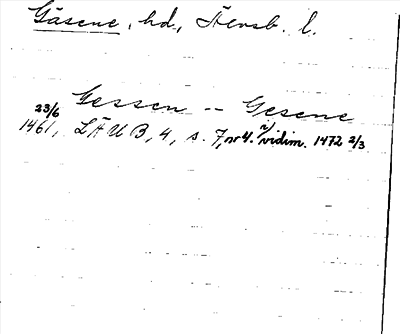 Gäsene, hd, Älvsb. l.
Gessen -- Gesene
23/6
1461, LÄUB, 4, s. 7, nr 4. vidim. 1472 2/3